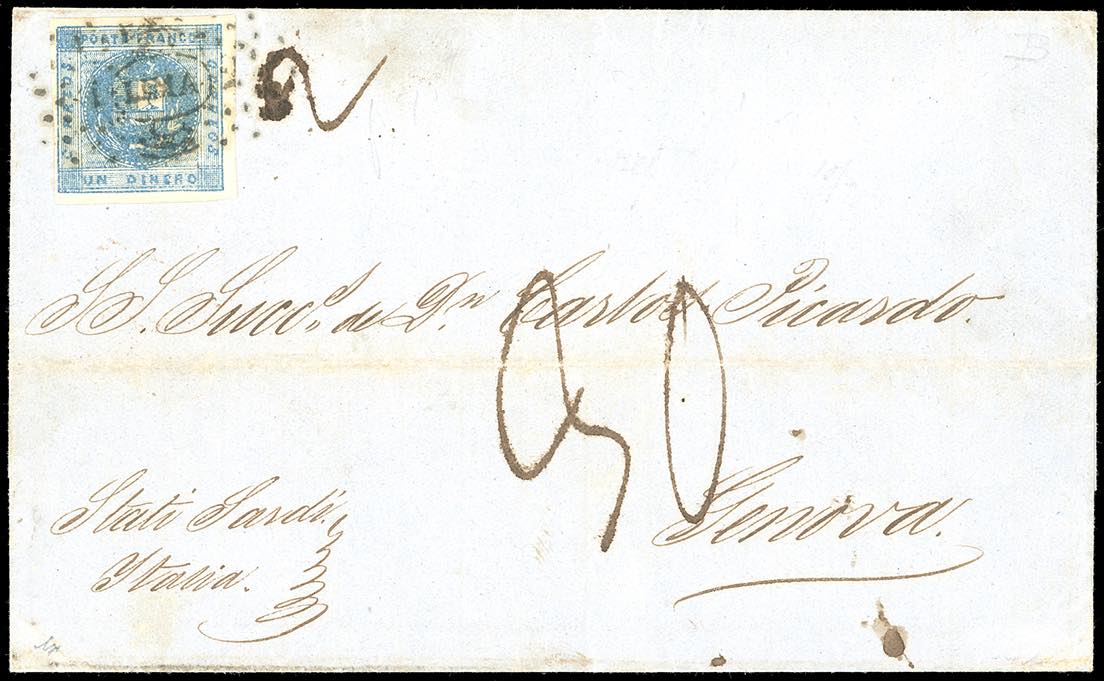 PORTE FRANCO
CORREOS
LIMA
UN DINERO
2
S.S. Succ.s de Dn Carlos Picardo.
90
Genova.
Stati Sardi
Italia.
B